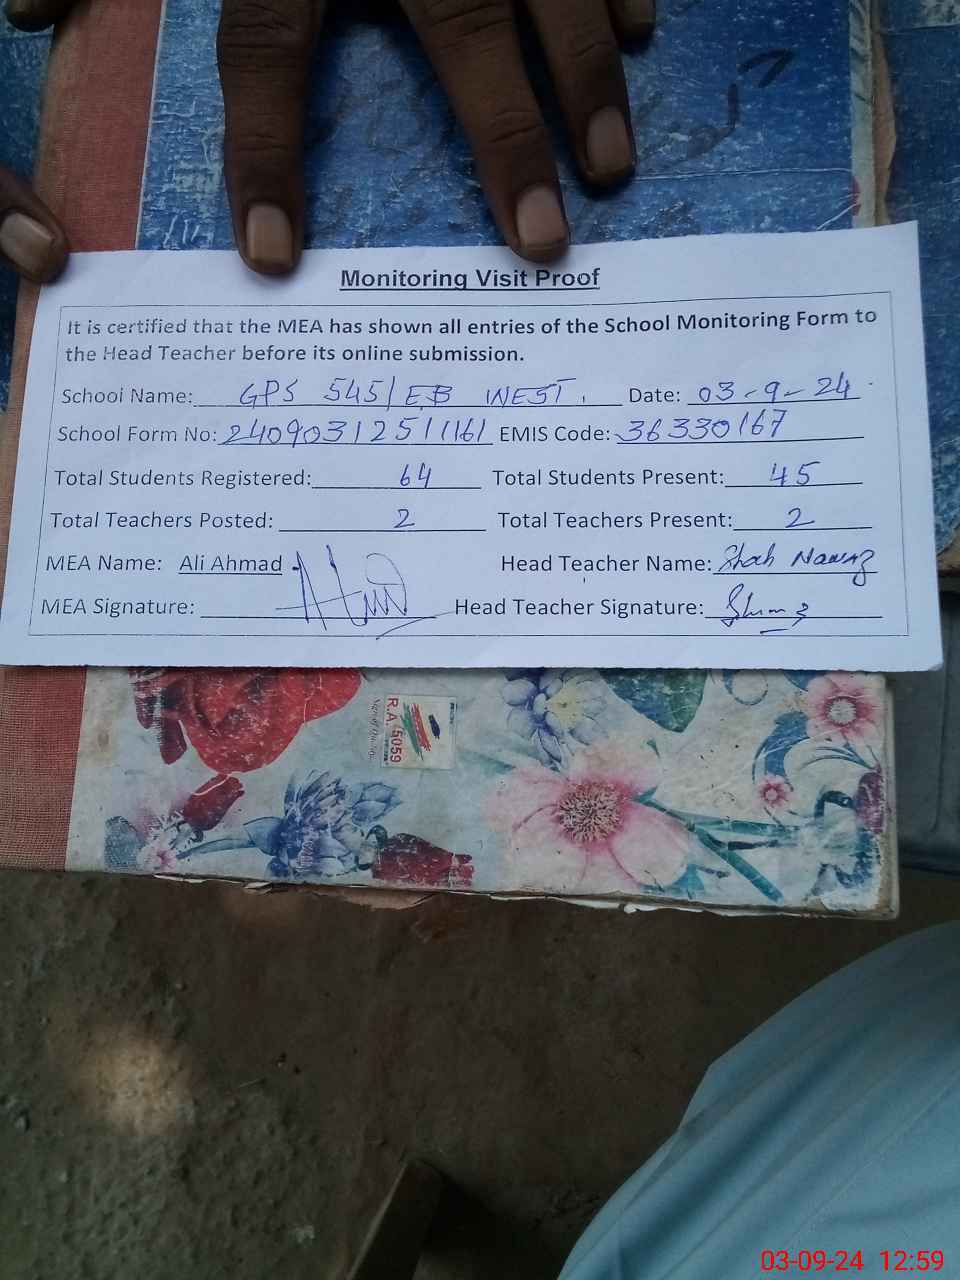 Monitoring Visit Proof
It is certified that the MEA has shown all entries of the School Monitoring Form to
the Head Teacher before its online submission.
School Name: GPS 545/EB WEST. Date: 03-9-24
School Form No: 24090312511161 EMIS Code: 36330167
Total Students Registered: 64 Total Students Present: 45
Total Teachers Posted: 2 Total Teachers Present: 2
MEA Name: Ali Ahmad Head Teacher Name: Shah Nawaz
MEA Signature: Head Teacher Signature:
R.A. 5059
03-09-24 12:59